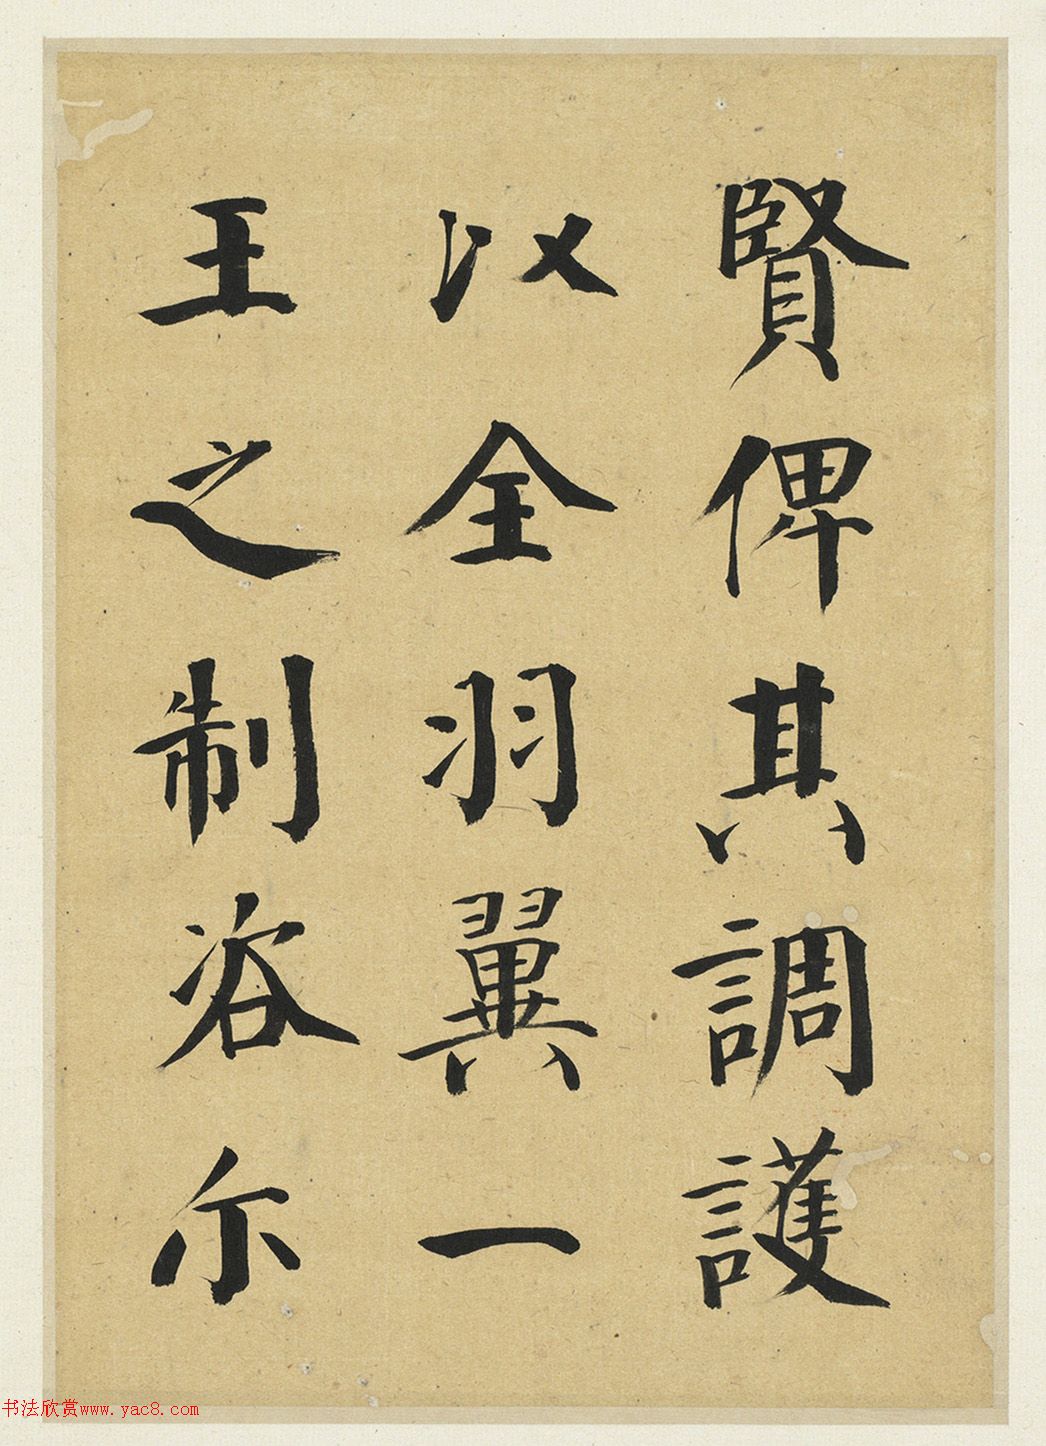 賢俾其調護
以全羽翼一
王之制咨尒
书法欣赏www.yac8.com